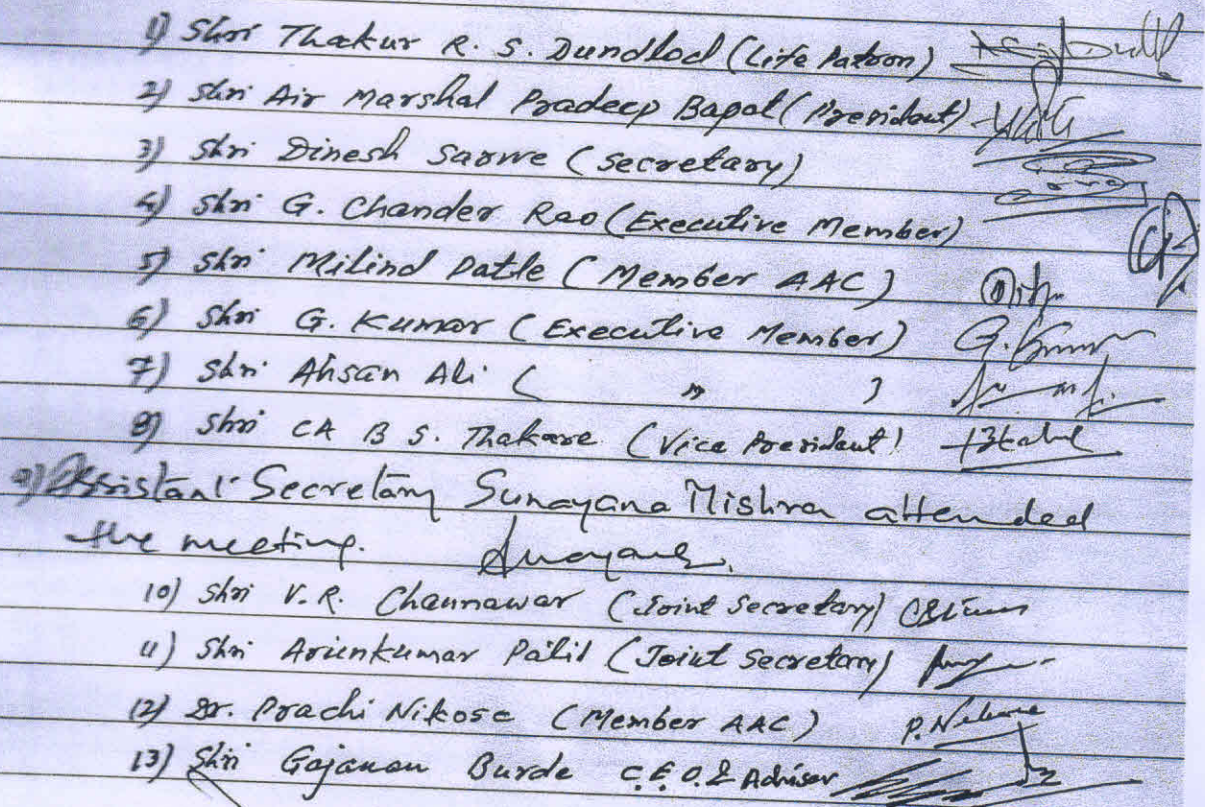 1) Shri Thakur R. S. Dundlod (Life Patron)
2) Shri Air Marshal Pradeep Bapat (President)
3) Shri Dinesh Sarwe (Secretary)
4) Shri G. Chander Rao (Executive Member)
5) Shri Milind Patle (Member AAC)
6) Shri G. Kumar (Executive Member) G. Kumar
7) Shri Ahsan Ali ( " )
8) Shri CA B S. Thakare (Vice President)
9) Assistant Secretary Sunayana Mishra attended
the meeting. Sunayana
10) Shri V.R. Channawar (Joint Secretary)
11) Shri Arunkumar Patil (Joint Secretary)
12) Dr. Prachi Nikose (Member AAC) P. Nikose
13) Shri Gajanan Burde C.E.O. & Adviser